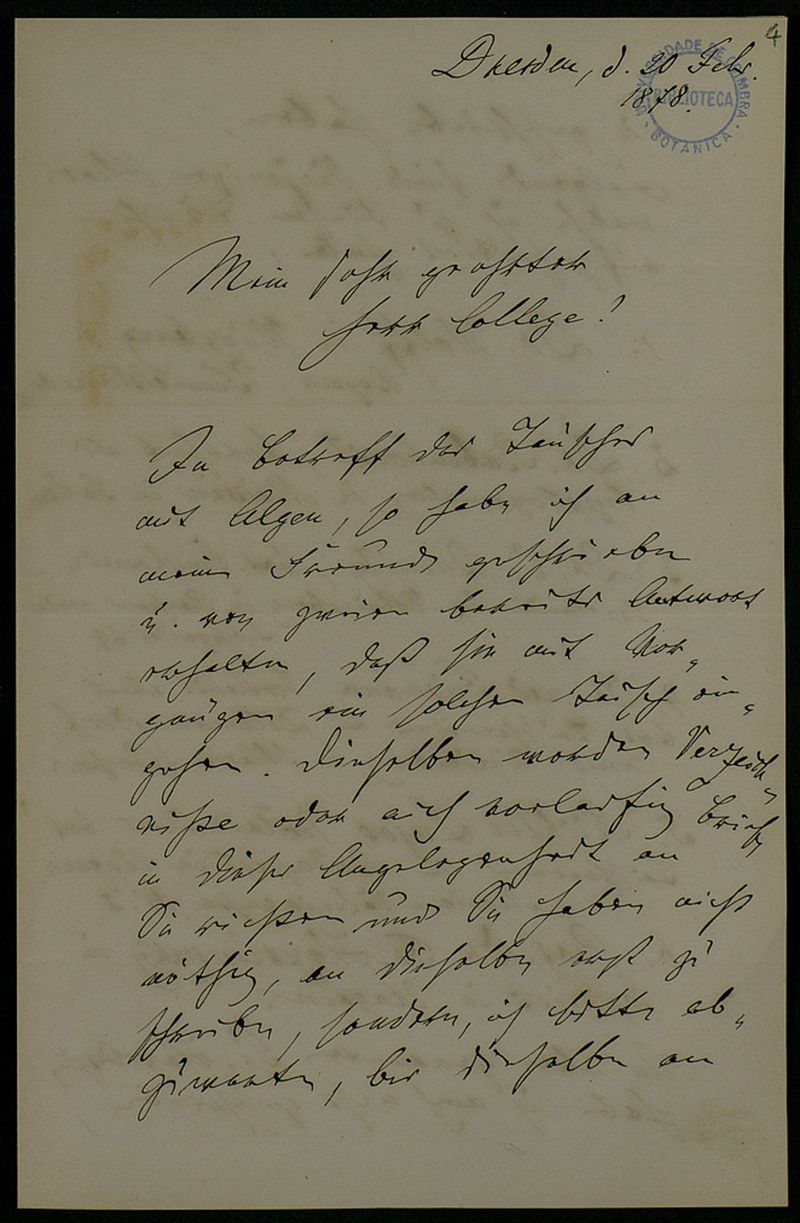 4
Dresden, d. 20 Febr.
1878.
UNIVERSIDADE DE COIMBRA
BIBLIOTECA
BOTANICA
Mein sehr geehrter
Herr College!
In Betreff des Tausches
mit Algen, so habe ich an
meine Freunde geschrieben
u. von zweien bereits Antwort
erhalten, daß sie mit Ver-
gnügen ein solchen Tausch ein-
gehen. Dieselben werden Verzeich-
niße oder auch vorläufig Briefe
in dieser Angelegenheit an
Sie richten und Sie haben nicht
nöthig, an dieselben erst zu
schreiben, sondern, ich bitte ab-
zuwarten, bis dieselben an